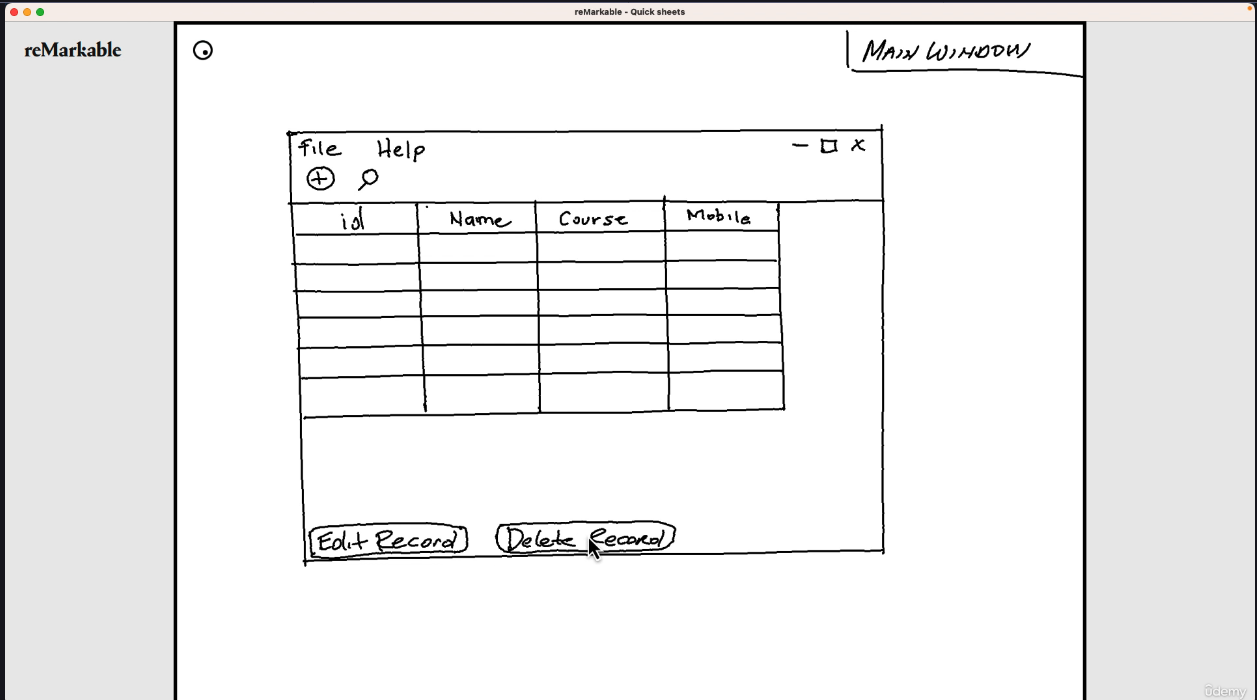 reMarkable - Quick sheets
reMarkable
MAIN WINDOW
File Help
id Name Course Mobile
Edit Record Delete Record
ûdemy